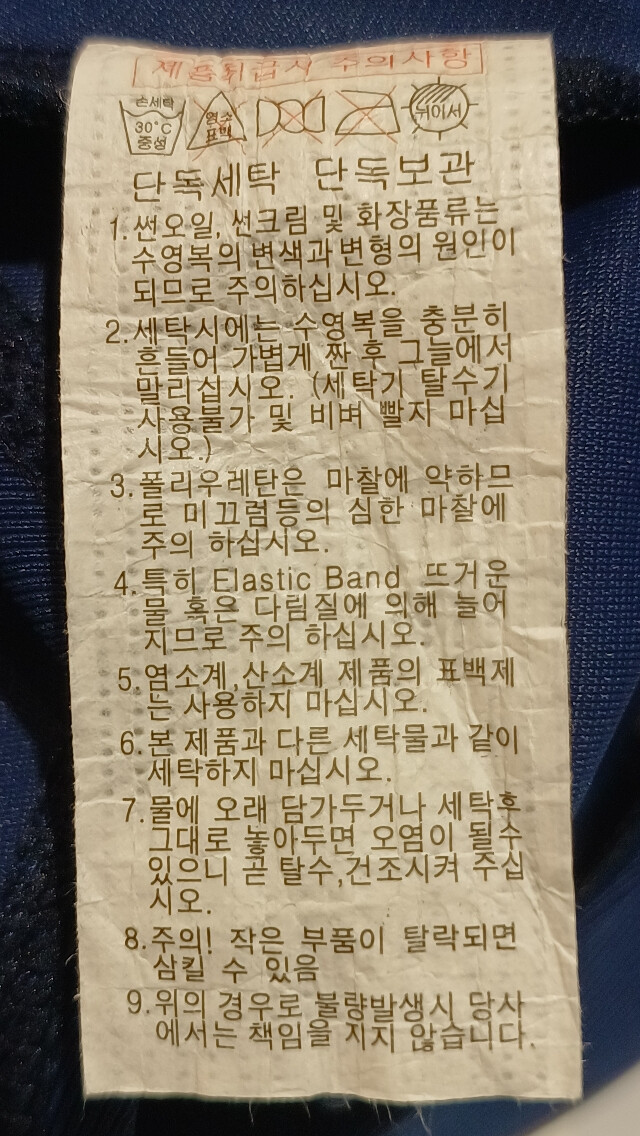 제품취급시 주의사항
손세탁 30°C 중성
염소 표백
뉘어서
단독세탁 단독보관
1. 썬오일, 썬크림 및 화장품류는
수영복의 변색과 변형의 원인이
되므로 주의하십시오.
2. 세탁시에는 수영복을 충분히
흔들어 가볍게 짠 후 그늘에서
말리십시오. (세탁기 탈수기
사용불가 및 비벼 빨지 마십
시오.)
3. 폴리우레탄은 마찰에 약하므
로 미끄럼등의 심한 마찰에
주의 하십시오.
4. 특히 Elastic Band 뜨거운
물 혹은 다림질에 의해 늘어
지므로 주의 하십시오.
5. 염소계, 산소계 제품의 표백제
는 사용하지 마십시오.
6. 본 제품과 다른 세탁물과 같이
세탁하지 마십시오.
7. 물에 오래 담가두거나 세탁후
그대로 놓아두면 오염이 될수
있으니 곧 탈수,건조시켜 주십
시오.
8. 주의! 작은 부품이 탈락되면
삼킬 수 있음
9. 위의 경우로 불량발생시 당사
에서는 책임을 지지 않습니다.